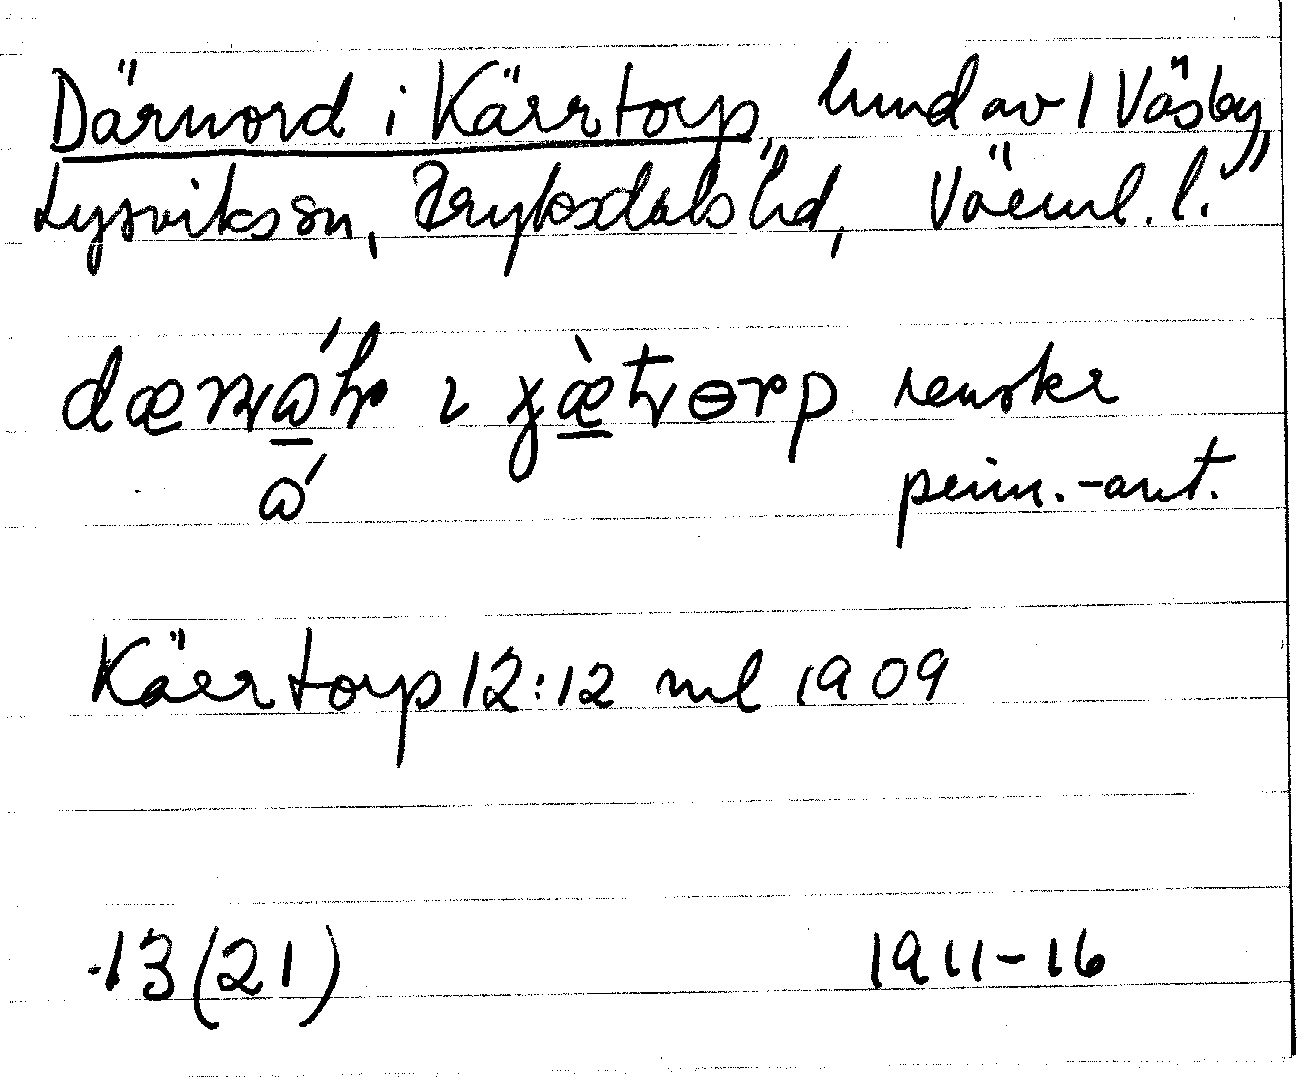 Därnord i Kärrtorp, lund av 1 Väsby,
Lysviks sn, Fryksdals hd, Värml. l.
i renskr
prim.-ant.
Kärrtorp 12:12 ml 1909
13 (21) 1911-16